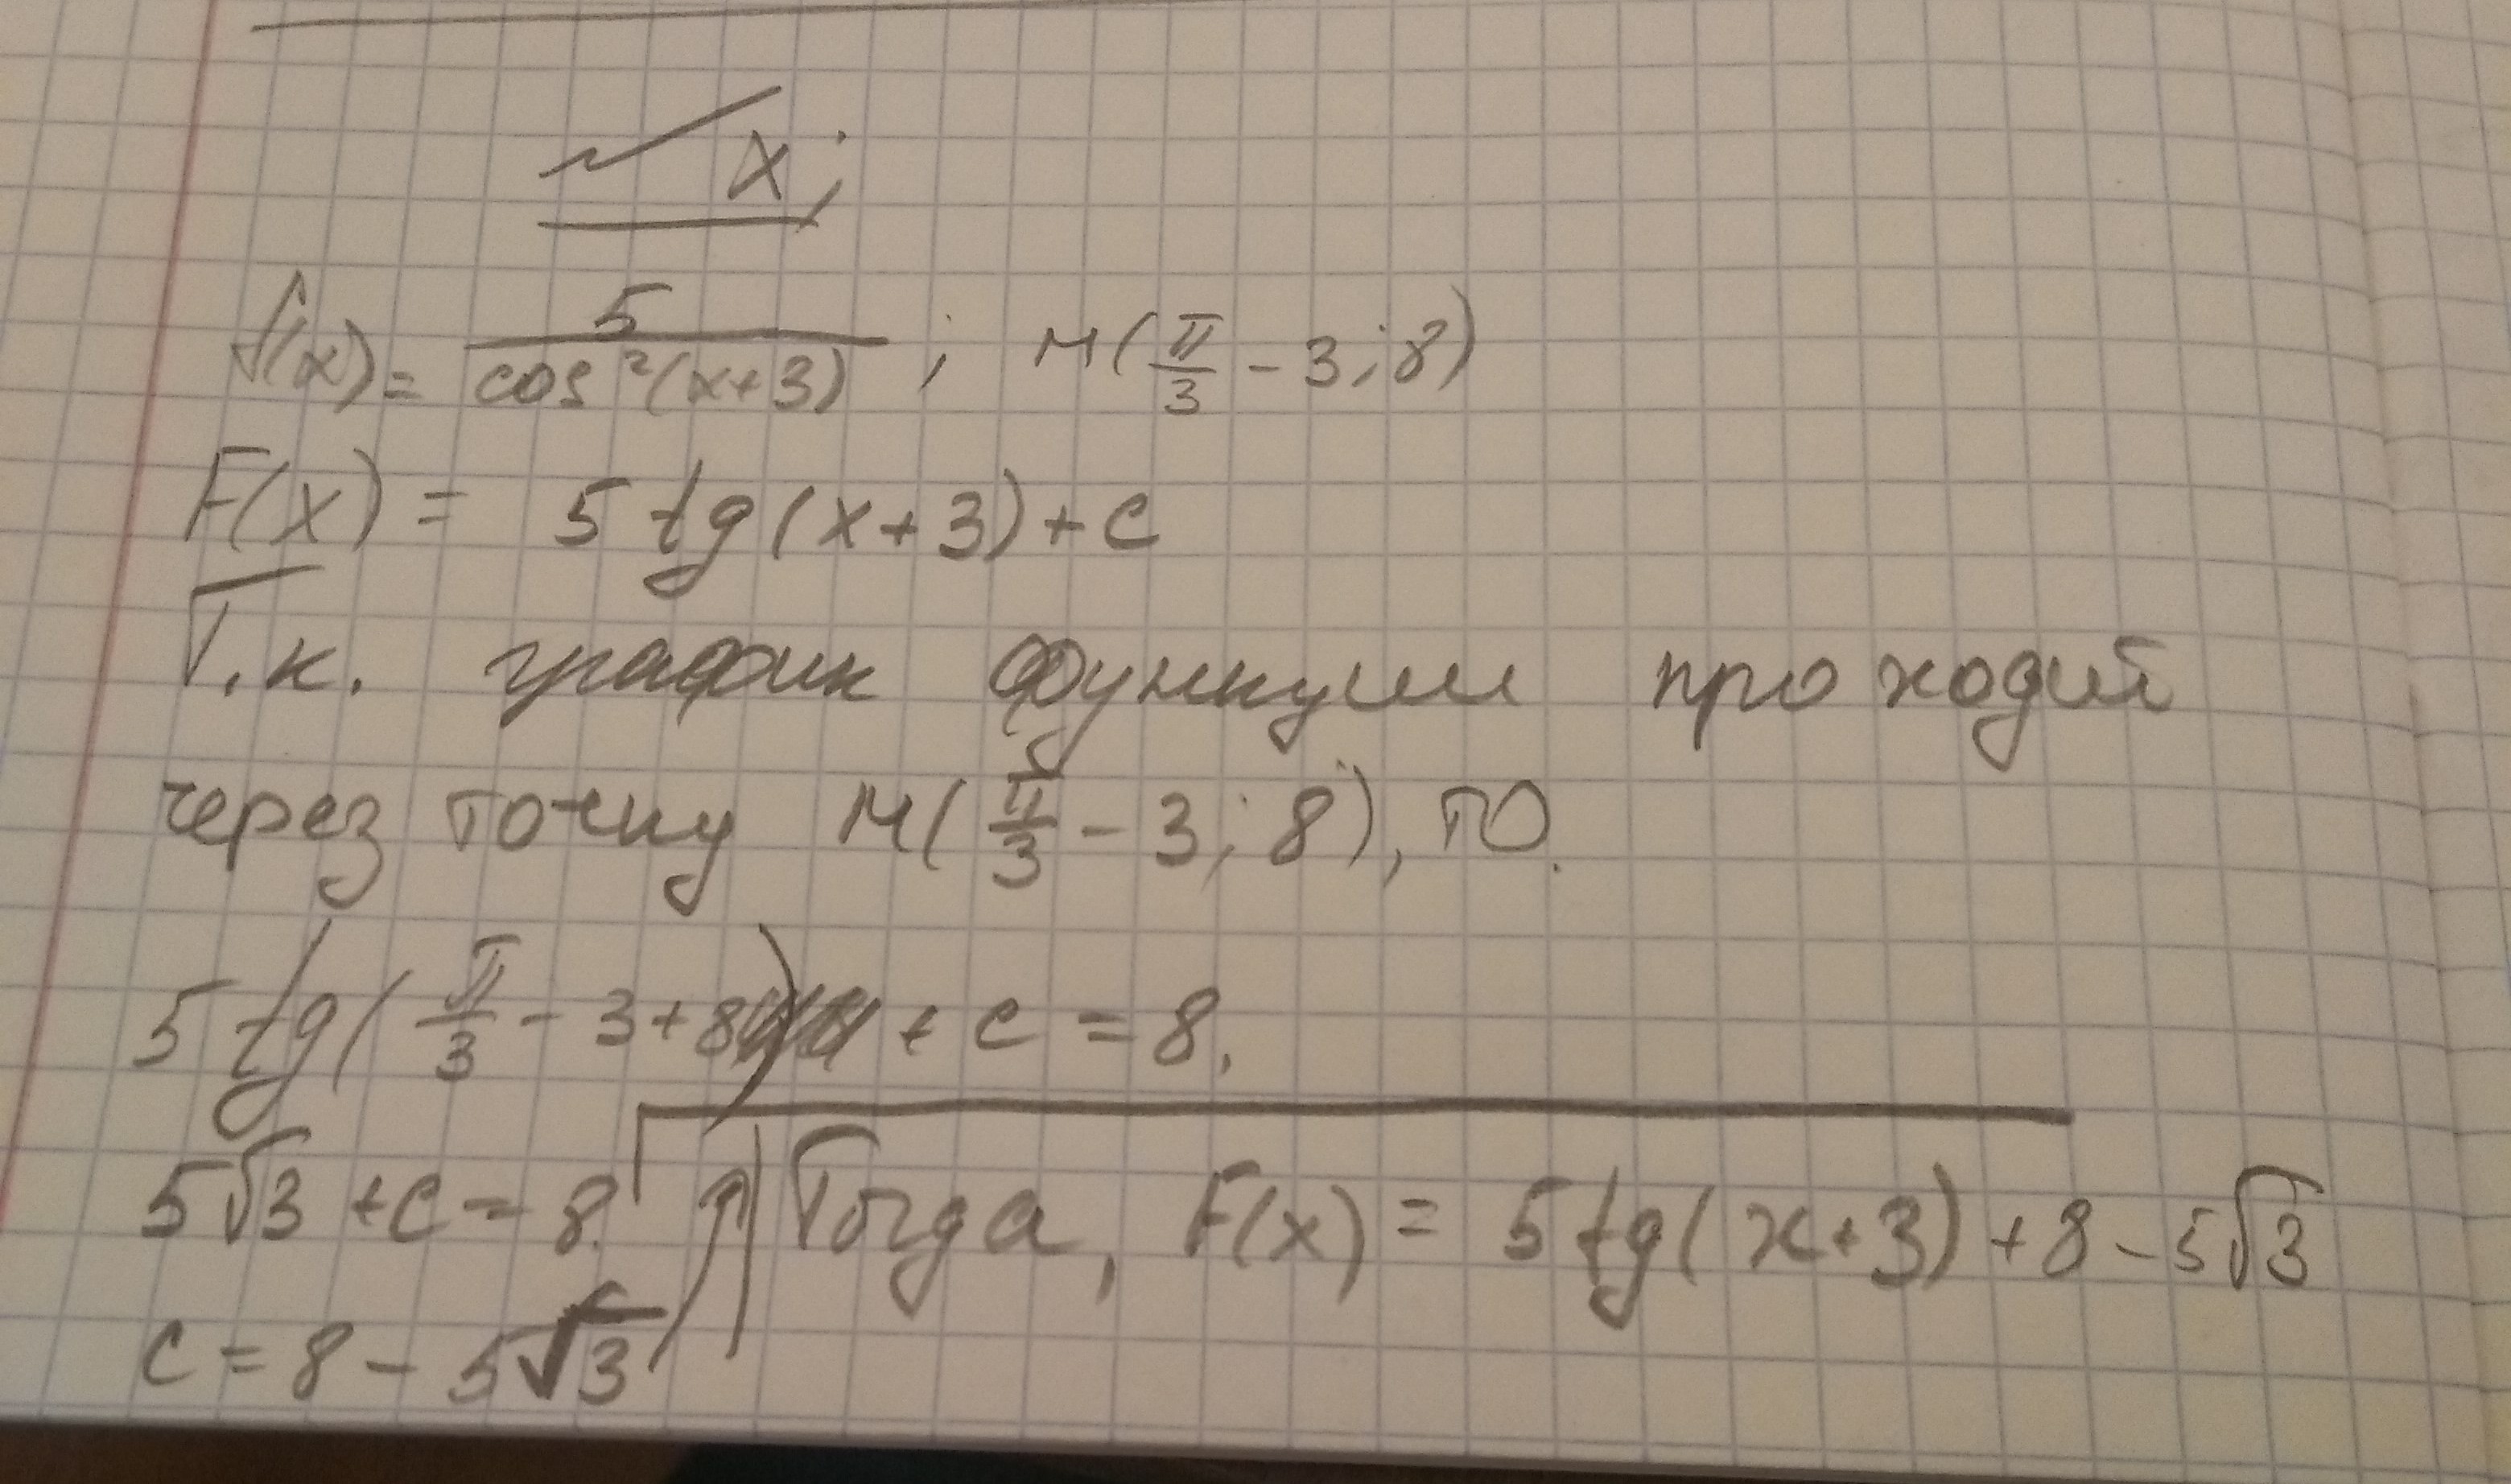 √ x;
f(x) = 5/cos²(x+3) ; М(π/3 - 3; 8)
F(x) = 5 tg(x+3) + c
Т.к. график функции проходит
через точку М(π/3 - 3; 8), то.
5 tg(π/3 - 3 + 8) + c = 8.
5√3 + c = 8.
c = 8 - 5√3
Тогда, F(x) = 5 tg(x+3) + 8 - 5√3